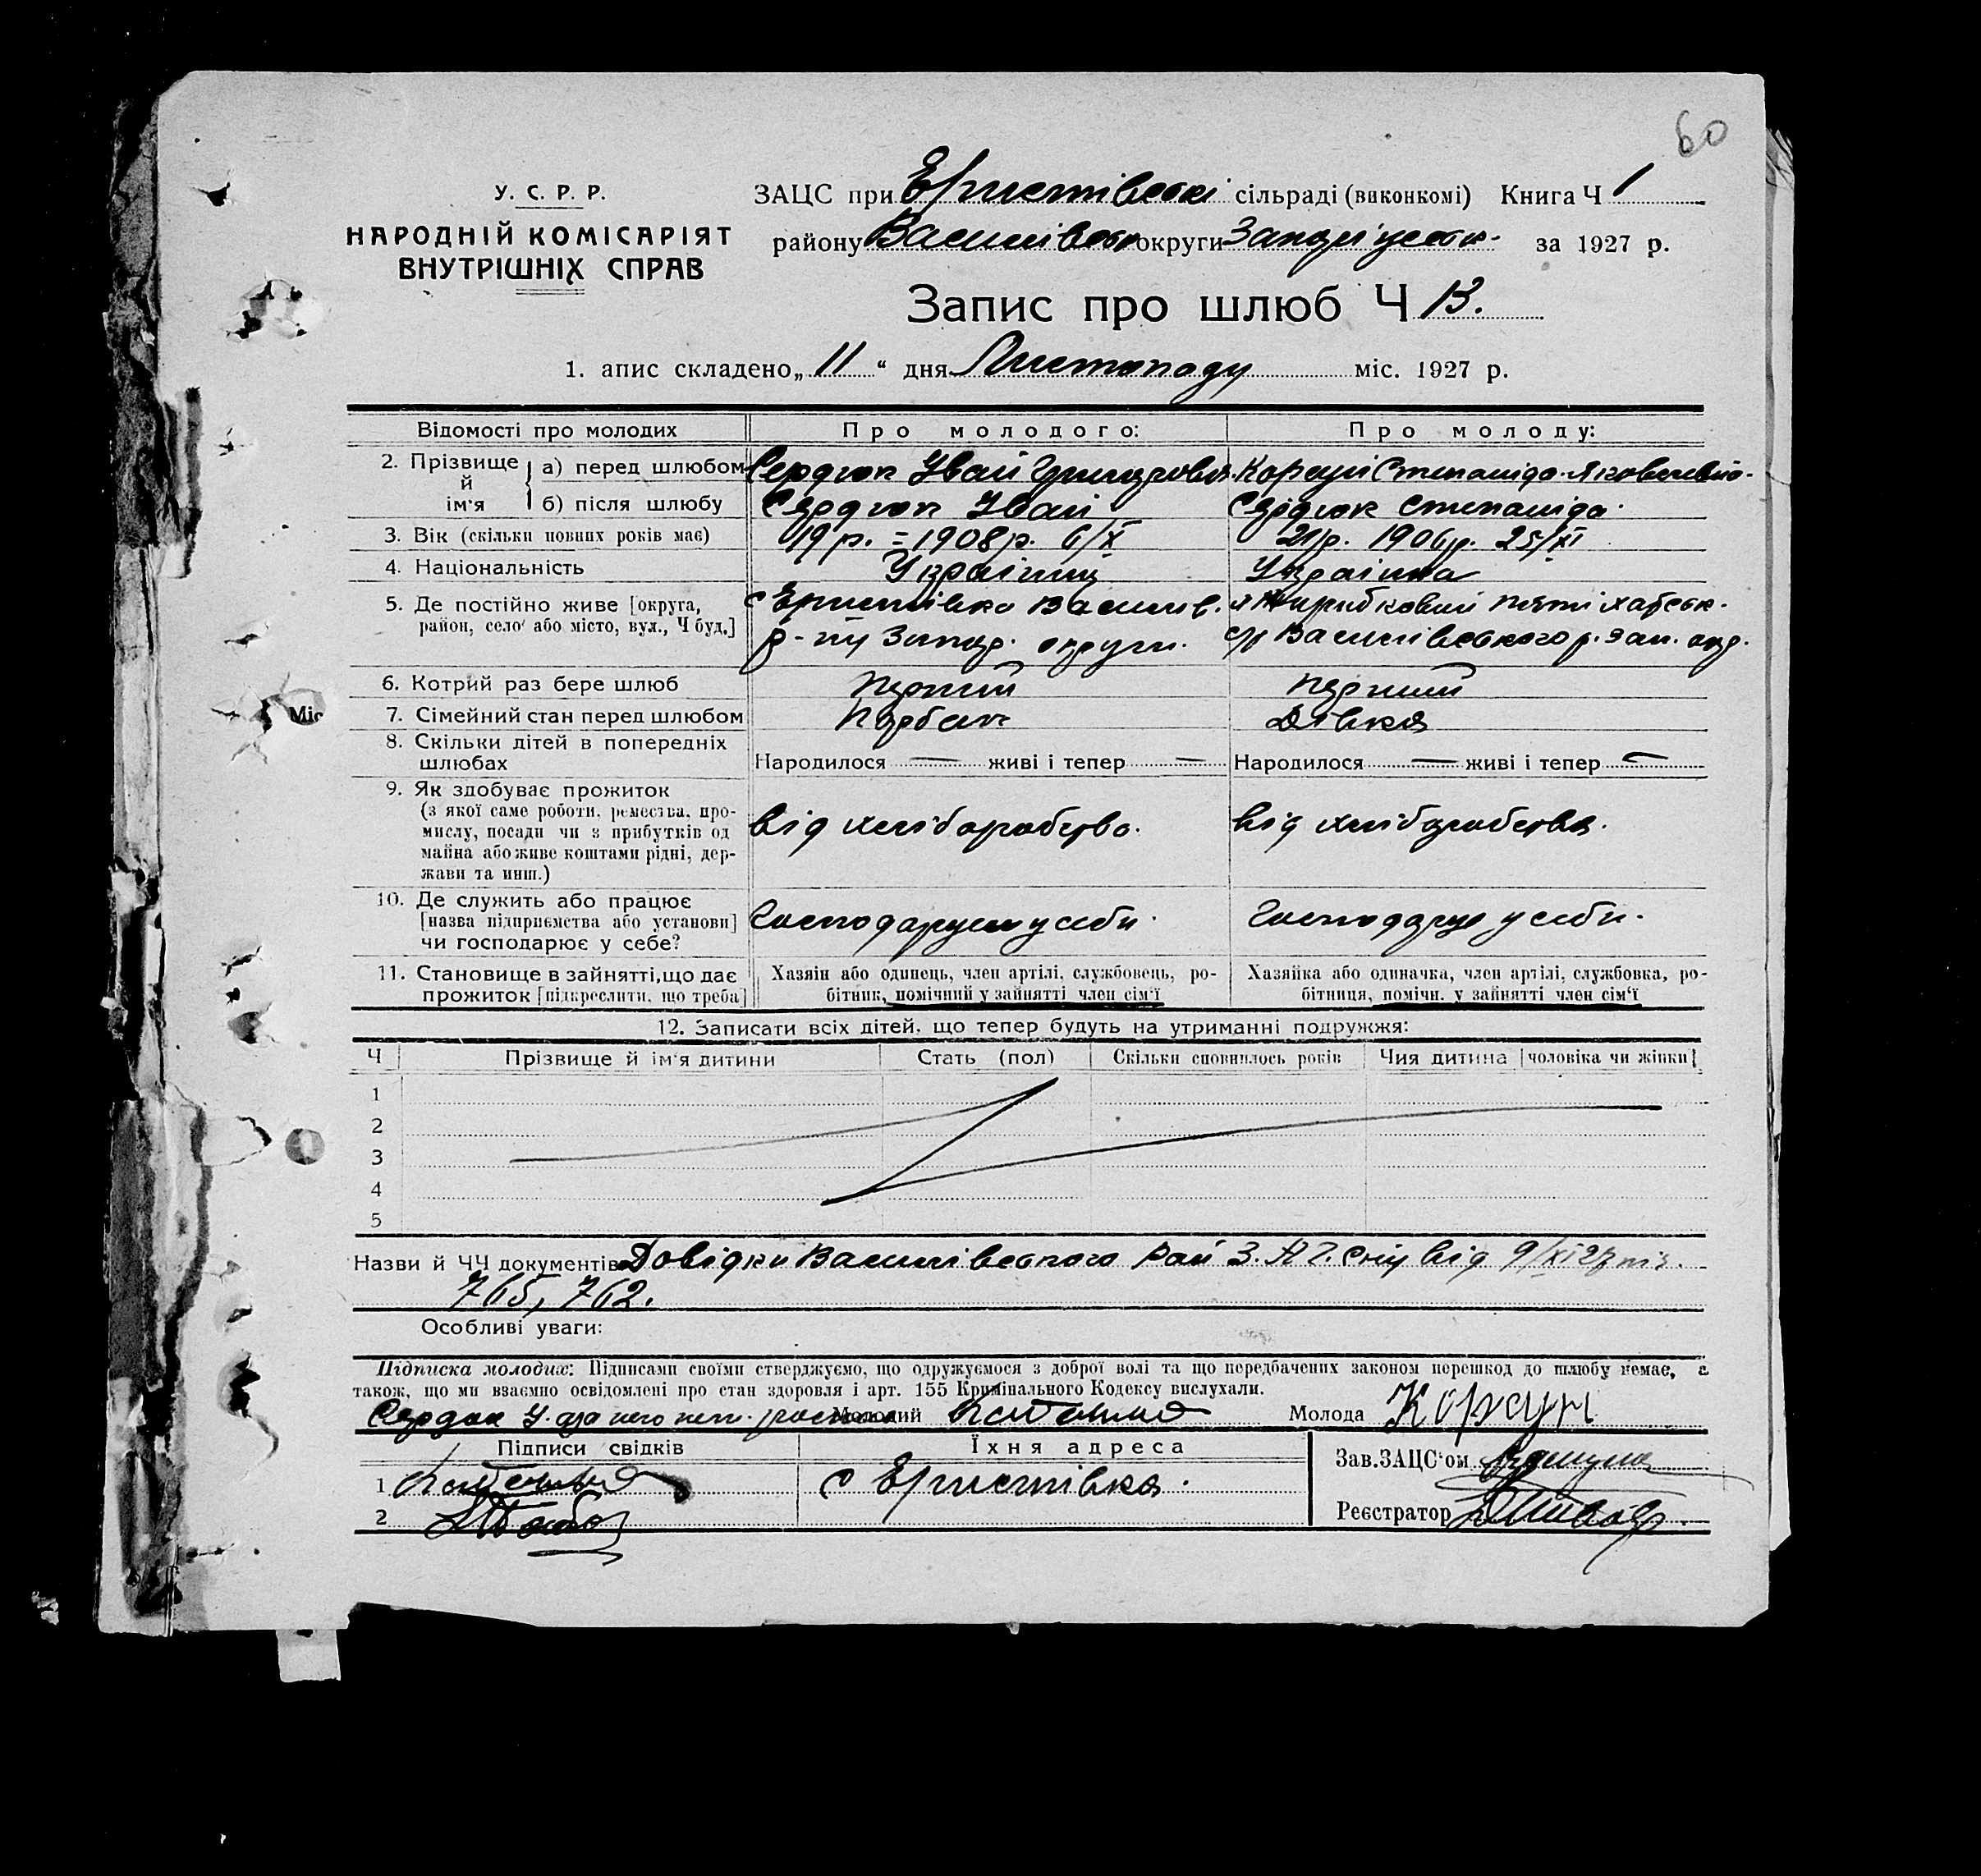 60
У. С. Р. Р.
НАРОДНІЙ КОМІСАРІЯТ
ВНУТРІШНІХ СПРАВ
ЗАЦС при Еристівські сільраді (виконкомі) Книга Ч 1
району Василівськ округи Запоріжськ. за 1927 р.
Запис про шлюб Ч 13.
1. апис складено „ 11 “ дня Листопаду міс. 1927 р.
Відомості про молодих
Про молодого:
Про молоду:
2. Прізвище й ім'я
а) перед шлюбом
Сердюк Іван Григорович
Корсун Степаніда Яковлевна
б) після шлюбу
Сердюк Іван
Сердюк Степаніда
3. Вік (скільки повних років має)
19 р. = 1908 р. 6/X
21 р. 1906 р. 25/XI
4. Національність
Українец
Українка
5. Де постійно живе [округа, район, село або місто, вул., Ч буд.]
с Еристівка Василів.
р-ну Запор. округи.
Пятіхатськ.
с/р Василівського р. Зап. окр.
6. Котрий раз бере шлюб
Перший
Перший
7. Сімейний стан перед шлюбом
Парбак
Дівка
Міс
8. Скільки дітей в попередніх шлюбах
Народилося — живі і тепер —
Народилося — живі і тепер —
9. Як здобуває прожиток
(з якої саме роботи, ремества, промислу, посади чи з прибутків од майна або живе коштами рідні, держави та инш.)
від хліборобства.
від хліборобства.
10. Де служить або працює
[назва підприємства або установи]
чи господарює у себе?
Господарує у себи.
Господарує у себи.
11. Становище в зайнятті, що дає прожиток [підкреслити, що треба]
Хазяїн або одинець, член артілі, службовець, робітник, помічний у зайнятті член сім'ї
Хазяйка або одиначка, член артілі, службовка, робітниця, помічн. у зайнятті член сім'ї
12. Записати всіх дітей, що тепер будуть на утриманні подружжя:
Ч
Прізвище й ім'я дитини
Стать (пол)
Скільки сповнилось років
Чия дитина [чоловіка чи жінки]
1
2
3
4
5
Назви й ЧЧ документів Довідки Василівського Рай З. А Г. Ску від 9/XI 27
765, 762.
Особливі уваги:
Підписка молодих: Підписами своїми стверджуємо, що одружуємося з доброї волі та що передбачених законом перешкод до шлюбу немає, а
також, що ми взаємно освідомлені про стан здоровля і арт. 155 Кримінального Кодексу вислухали.
Сердюк І. Молодий
Молода Корсун
Підписи свідків
Їхня адреса
Зав. ЗАЦС'ом
1
с Еристівка.
2
Реєстратор